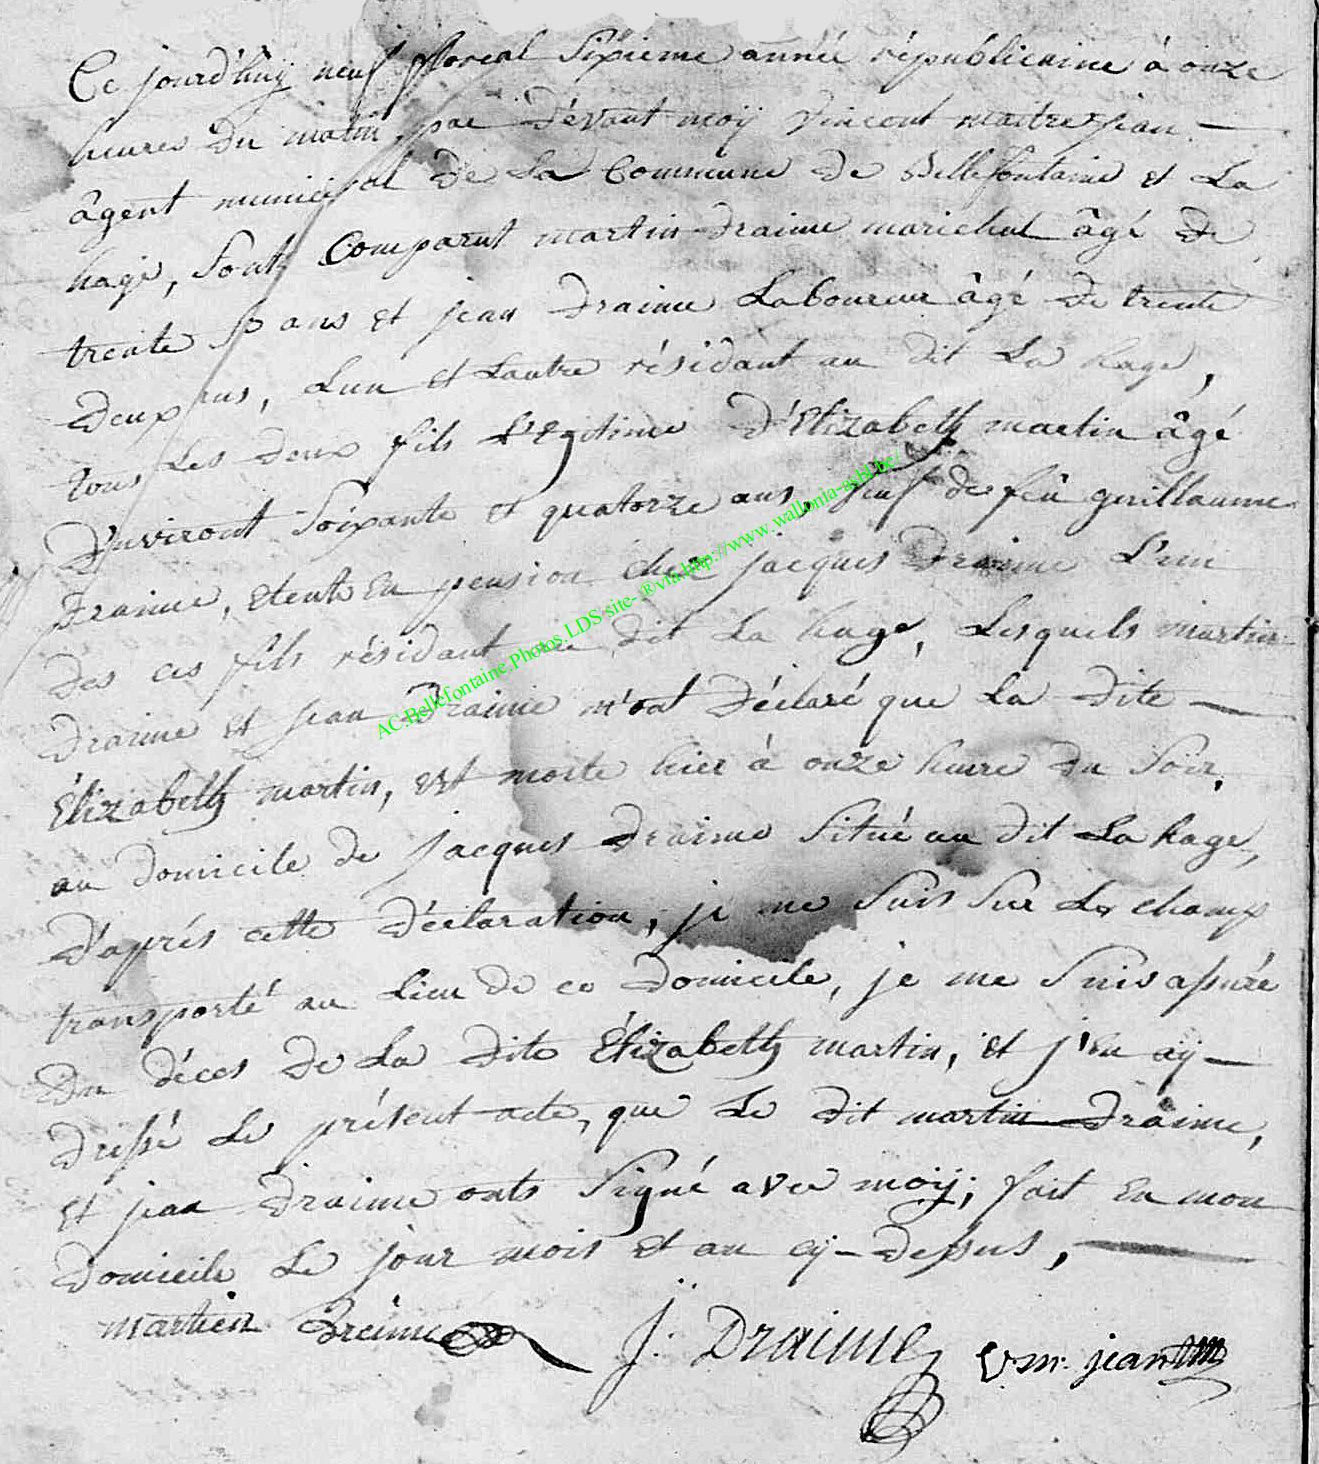 Ce jourd'huÿ neuf floreal sixieme année républicaine à onze
heures du matin, par dévant moÿ vincent maitrejean —
âgent municipal de La Commune de Bellefontaine et La
hage, sont Comparut martin draime marichal âgé de
trente ans et jean draime Laboureur âgé de trente
deux ans, Lun et Lautre résidant au dit La hage,
tous Les deux fils L'Egitime d'Elizabeth martin âgé
D'environt soixante et quatorze ans, veuf de feû guillaume
Draime, etent En pension chez jacques Draime L'un
des ces fils résidant au dit La hage, Lesquels martin
draime et jean Draime m'ont Déclaré que La dite —
Élizabeth martin, est morte hier à onze heure du soir,
au domicile de jacques draime situé au dit La hage,
D'aprés cette Déclaration, je me suis sur Le champ
transporté au Lieu de ce domicile, je me suis assurée
Du déces de La dite Élizabeth martin, et j'en aÿ —
dressé Le présent acte, que Le dit martin Draime,
et jean Draime onts signé avec moÿ; fait En mon
domicile Le jour mois et an cÿ-dessus, —
martien Dreime J: Draime V m: jean
AC.Bellefontaine.Photos.LDS site- ®via.http://www.wallonia-asbl.be/